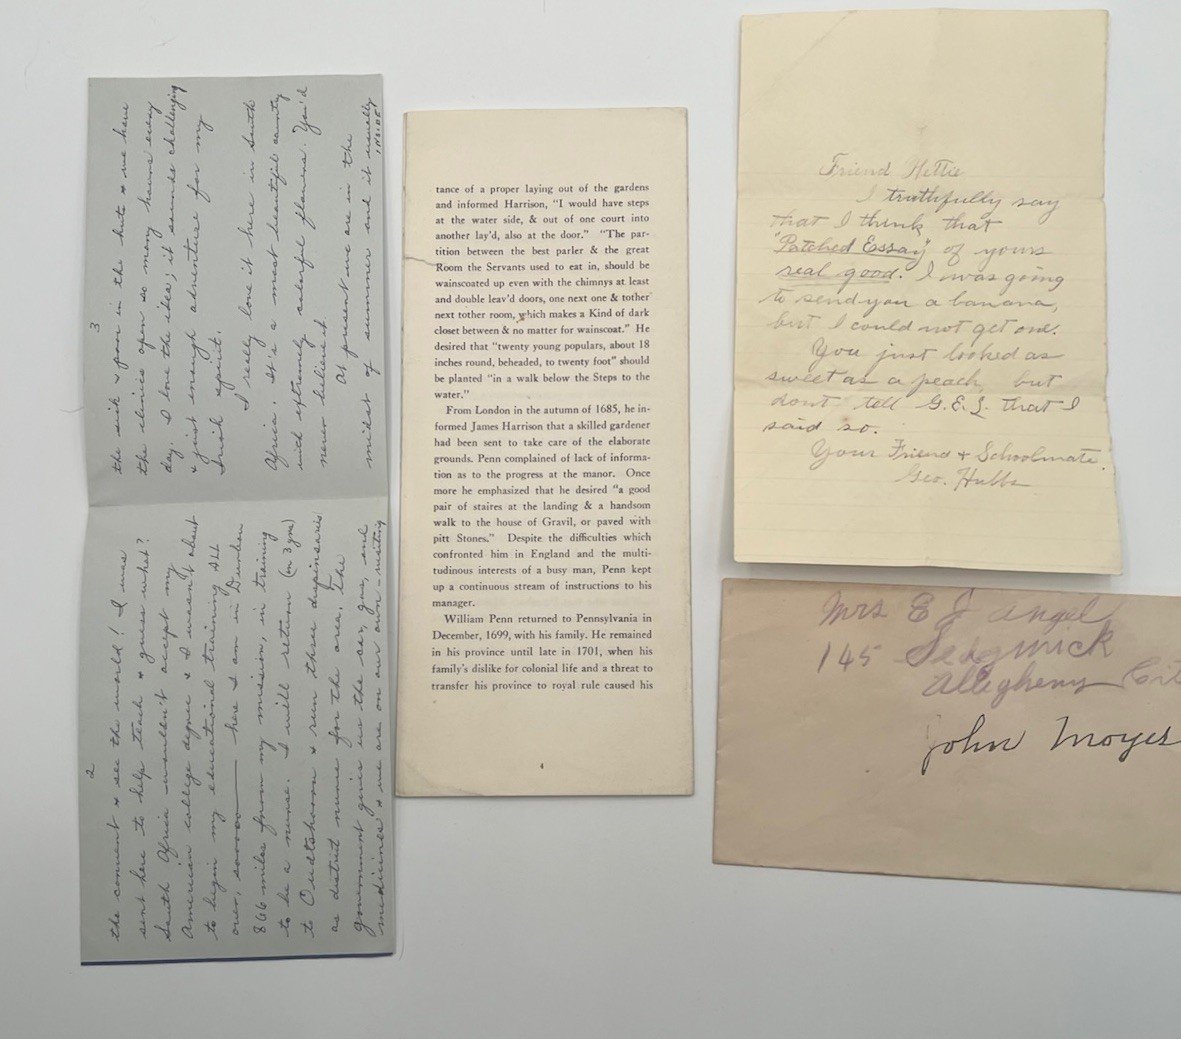 2
the convent & see the world! I was
sent here to help teach & guess what?
South Africa wouldn't accept my
American college degree & I wasn't about
to begin my educational training all
over, soooooo here I am in Durban
866 miles from my mission, in training
to be a nurse. I will return (in 3 yrs)
to Oudtshoorn & run three dispensaries
as district nurse for the area. The
government gives us the car, gas, and
medicines & we are on our own - visiting
3
the sick & poor in the huts & we have
the clinics open so many hours every
day. I love the idea; it sounds challenging
& just enough adventure for my
Irish spirit.
I really love it here in South
Africa it's a most beautiful country
with extremely colorful flowers. You'd
never believe it.
At present we are in the
midst of summer and it usually
tance of a proper laying out of the gardens
and informed Harrison, "I would have steps
at the water side, & out of one court into
another lay'd, also at the door." "The par-
tition between the best parler & the great
Room the Servants used to eat in, should be
wainscoated up even with the chimnys at least
and double leav'd doors, one next one & tother
next tother room, which makes a Kind of dark
closet between & no matter for wainscoat." He
desired that "twenty young populars, about 18
inches round, beheaded, to twenty foot" should
be planted "in a walk below the Steps to the
water."
From London in the autumn of 1685, he in-
formed James Harrison that a skilled gardener
had been sent to take care of the elaborate
grounds. Penn complained of lack of informa-
tion as to the progress at the manor. Once
more he emphasized that he desired "a good
pair of staires at the landing & a handsom
walk to the house of Gravil, or paved with
pitt Stones." Despite the difficulties which
confronted him in England and the multi-
tudinous interests of a busy man, Penn kept
up a continuous stream of instructions to his
manager.
William Penn returned to Pennsylvania in
December, 1699, with his family. He remained
in his province until late in 1701, when his
family's dislike for colonial life and a threat to
transfer his province to royal rule caused his
4
Friend Hettie
I truthfully say
that I think that
"Patched Essay" of yours
real good. I was going
to send you a banana,
but I could not get one.
You just looked as
sweet as a peach, but
dont tell G.E.L. that I
said so.
Your Friend & Schoolmate.
Geo. Hubbs
Mrs E J Angel
145 Sedgwick
Allegheny Cit
John Moyes